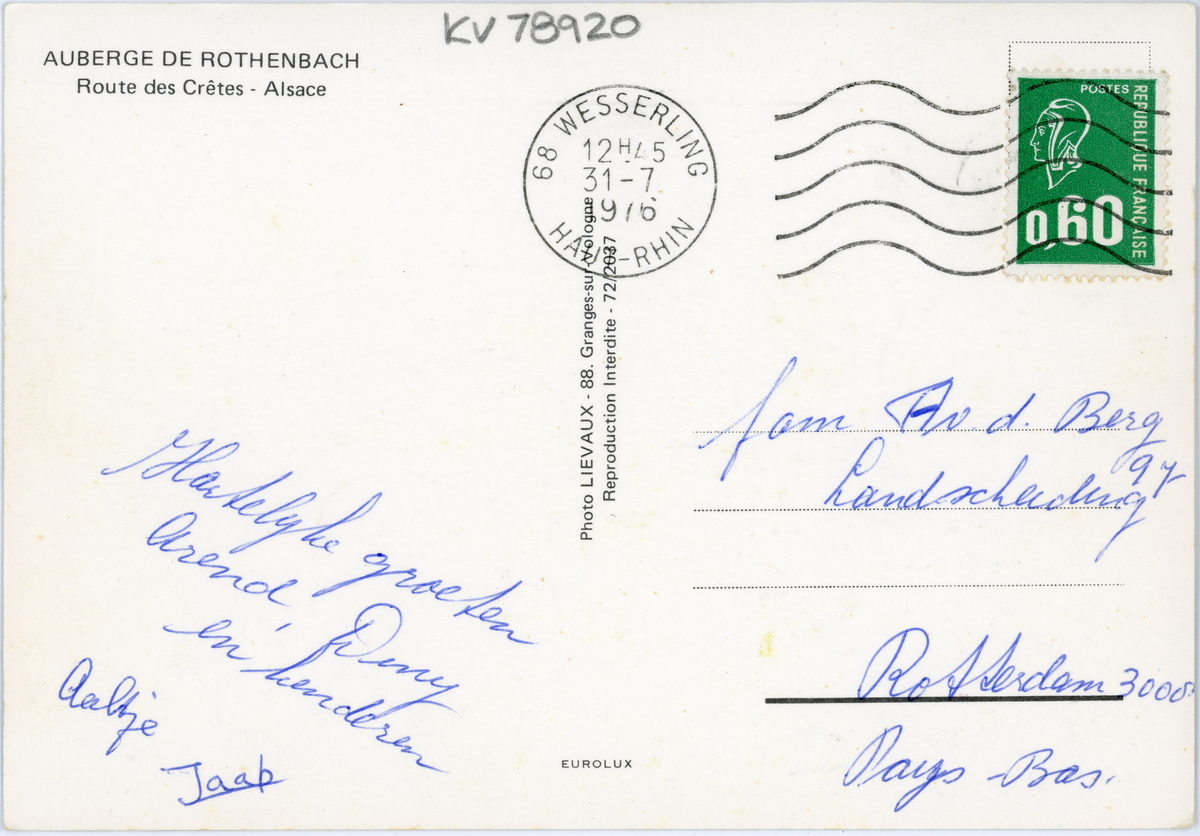 KV 78920
AUBERGE DE ROTHENBACH
Route des Crêtes - Alsace
68 WESSERLING
12H45
31-7
1976
HAUT-RHIN
POSTES
REPUBLIQUE FRANÇAISE
0,60
Photo LIEVAUX - 88. Granges-sur-Vologne
Reproduction Interdite - 72/2037
fam A v. d. Berg
Landscheiding 97
Rotterdam 3000
Pays-Bas.
Hartelijke groeten
Arend, Diny
en kenderen
Aaltje
Jaap
EUROLUX